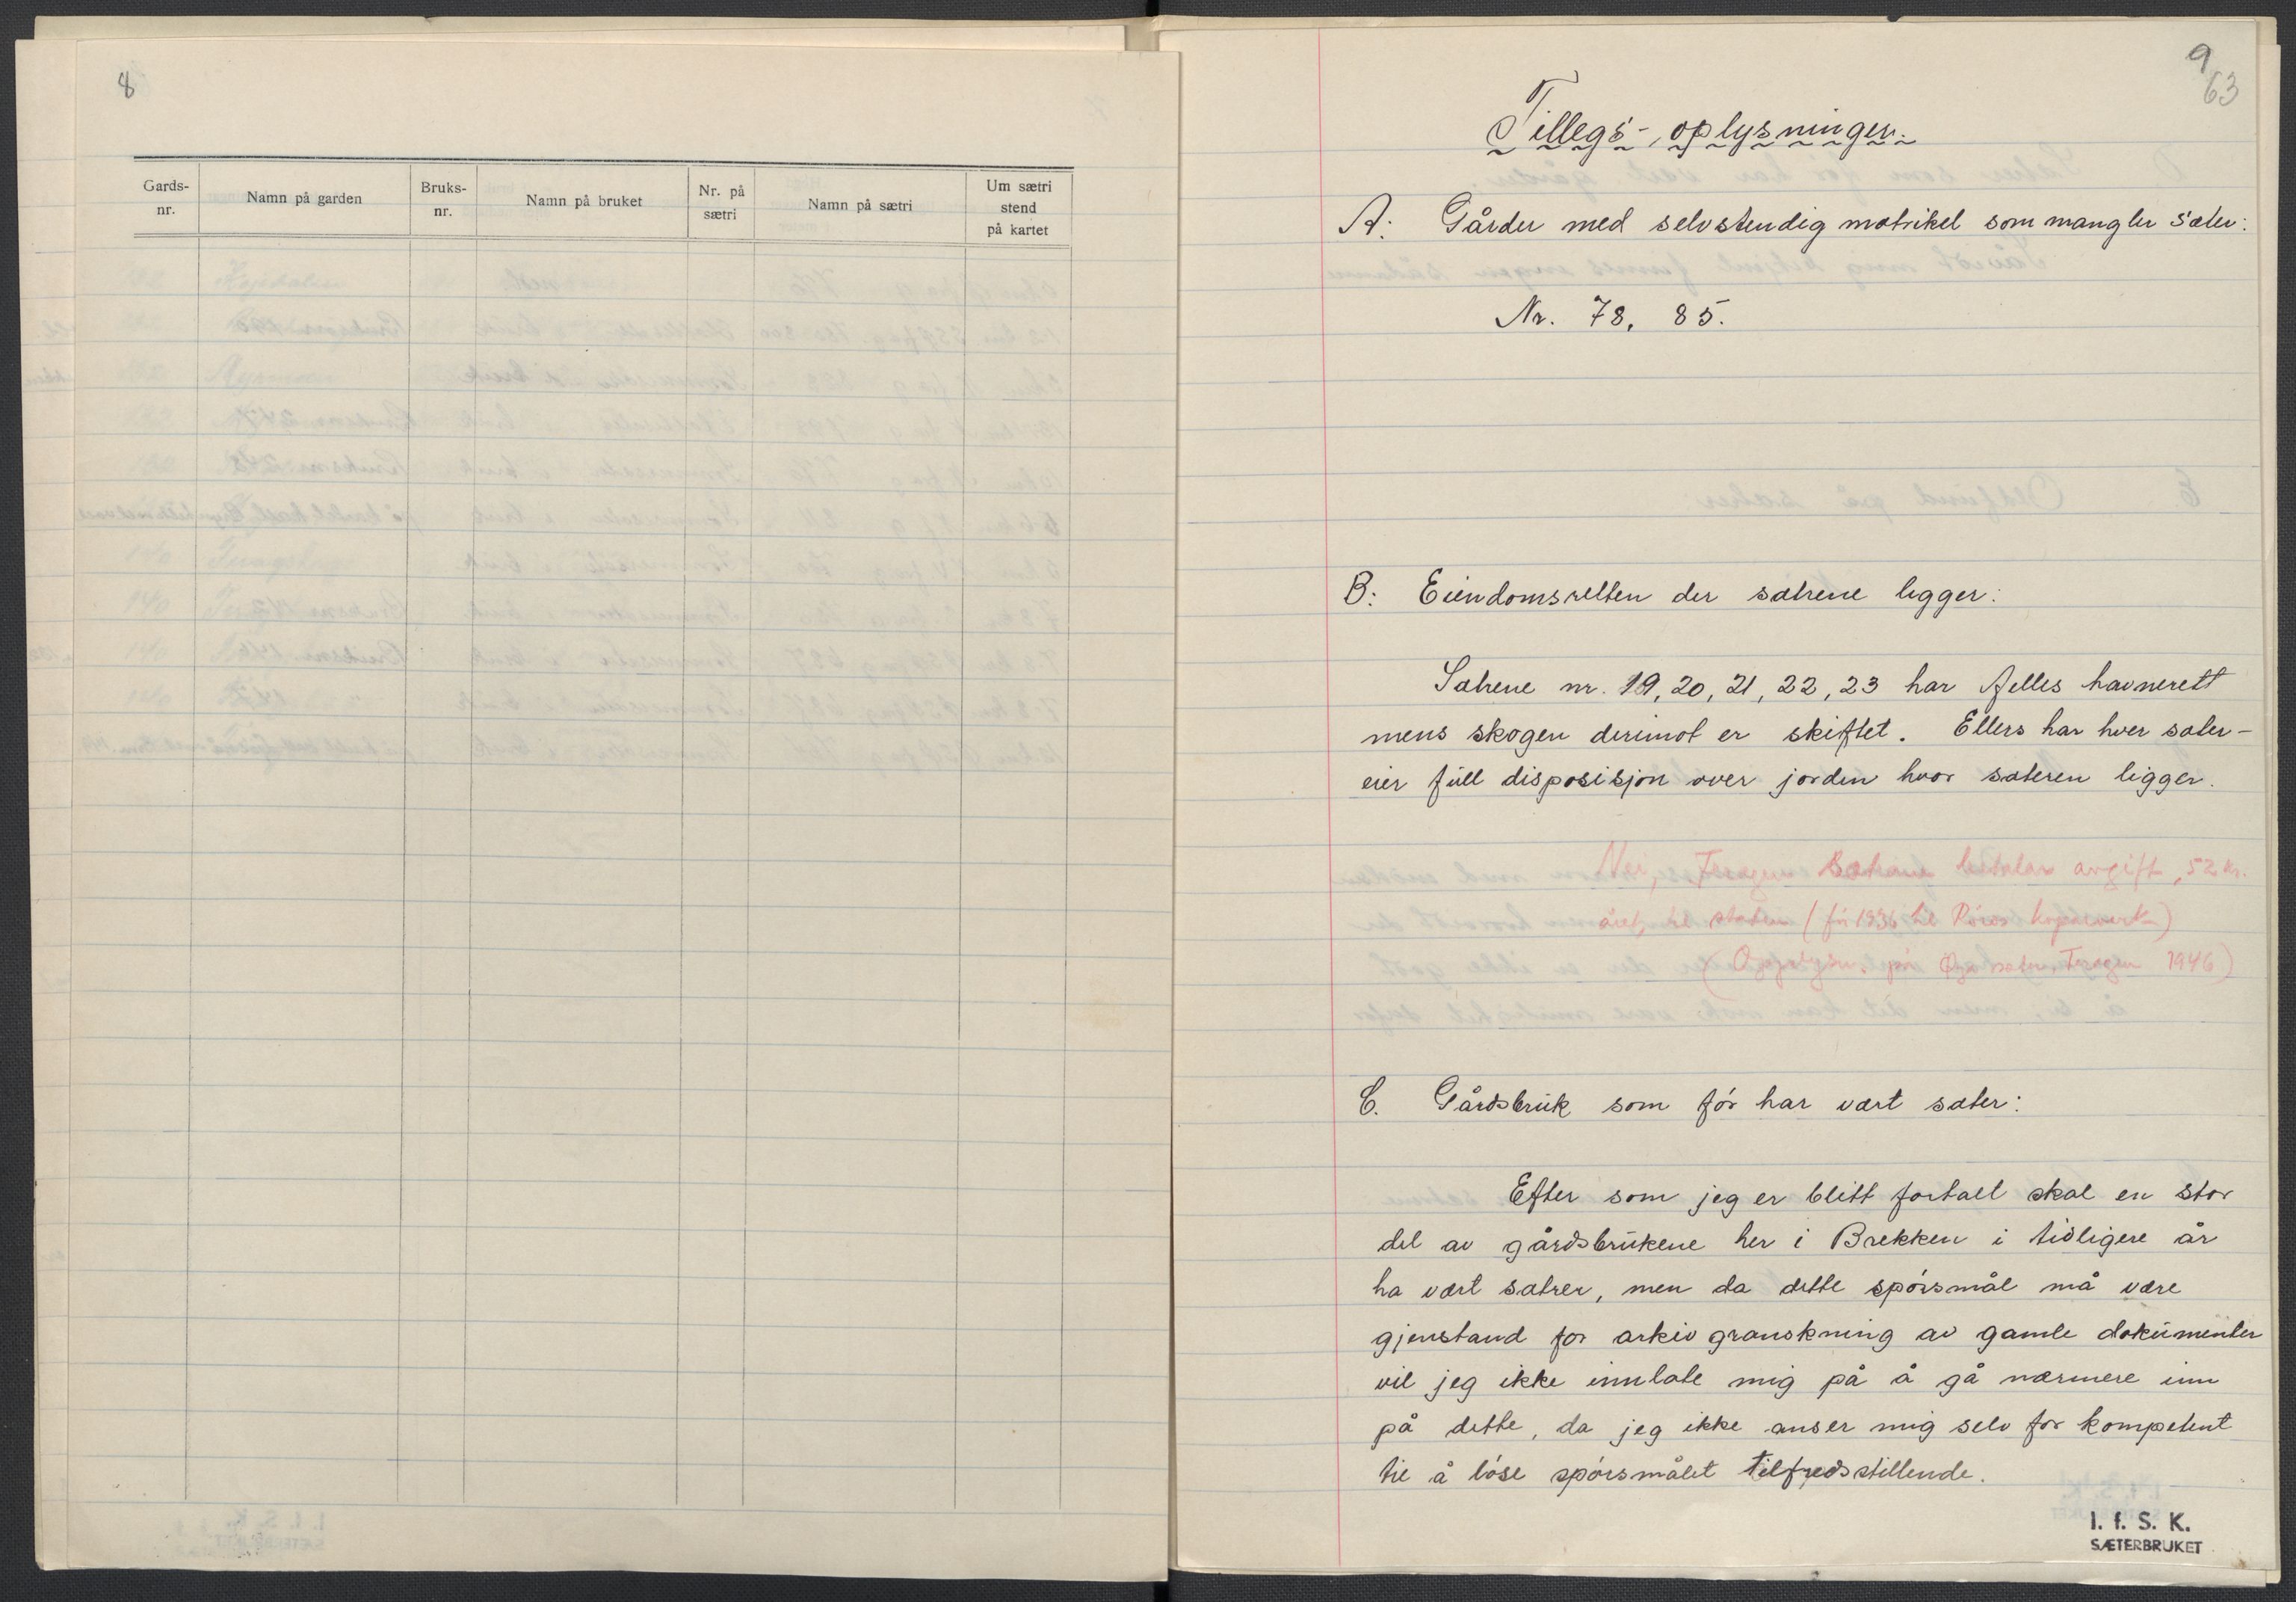 8
Gards-
nr.
Namn på garden
Bruks-
nr.
Namn på bruket
Nr. på
sætri
Namn på sætri
Um sætri
stend
på kartet
9
63
Tillegs-oplysninger.
A: Gårder med selvstendig matrikel som mangler sæter:
Nr. 78, 85.
B: Eiendomsretten der sætrene ligger:
Sætrene nr. 19, 20, 21, 22, 23 har felles havnerett
mens skogen derimot er skiftet. Ellers har hver sæter-
eier full disposisjon over jorden hvor sæteren ligger.
Nei, Feragen betalar avgift, 52 kr.
året, til staten (før 1936 til Røros koparverk)
(Opplysn. på Øya sæter, Feragen 1946)
C. Gårdsbruk som før har vært sæter:
Efter som jeg er blitt fortalt skal en stor
del av gårdsbrukene her i Brekken i tidligere år
ha vært sætrer, men da dette spørsmål må være
gjenstand for arkivgranskning av gamle dokumenter
vil jeg ikke innlate mig på å gå nærmere inn
på dette, da jeg ikke anser mig selv for kompetent
til å løse spørsmålet tilfredsstillende.
I. f. S. K.
SÆTERBRUKET